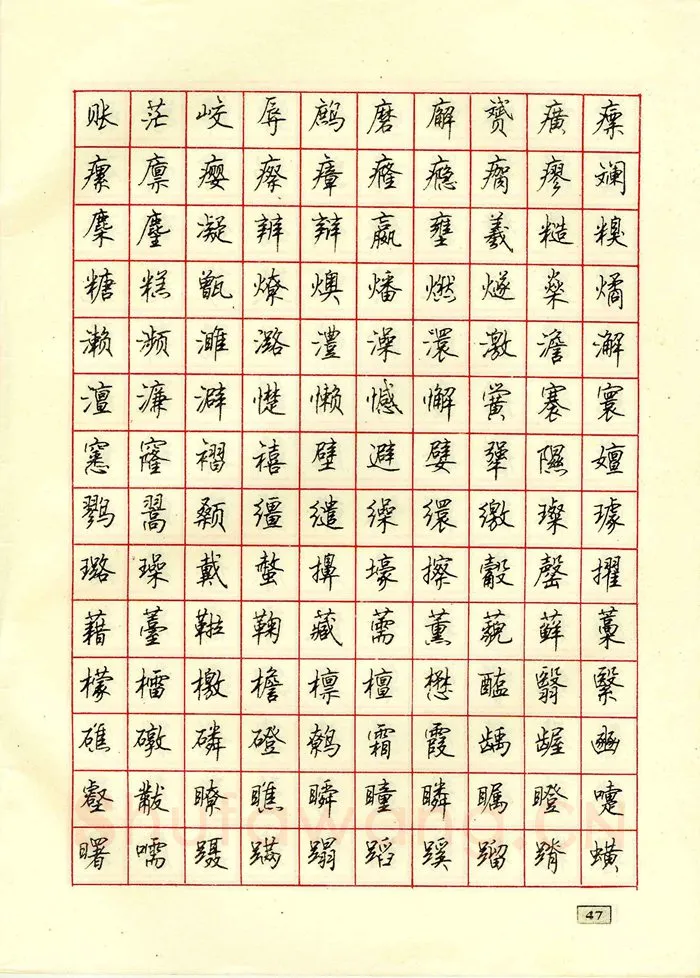 账 茫 峧 辱 鹧 磨 廨 赟 癀 瘭
瘰 廪 瘿 瘵 瘴 癃 瘾 瘸 瘳 斓
麇 麈 凝 辨 辩 嬴 壅 羲 糙 糗
糖 糕 甑 燎 燠 燔 燃 燧 燊 燏
濑 濒 濉 潞 澧 澡 澴 激 澹 澥
澶 濂 澼 憷 懒 憾 懈 黉 褰 寰
窸 窿 褶 禧 壁 避 嬖 犟 隰 嬗
鹨 翯 颡 缰 缱 缲 缳 缴 璨 璩
璐 璪 戴 螫 擤 壕 擦 觳 罄 擢
藉 薹 鞡 鞠 藏 薷 薰 藐 藓 藁
檬 檑 檄 檐 檩 檀 懋 醢 翳 繄
礁 礅 磷 磴 鹩 霜 霞 龋 龌 豳
壑 黻 瞭 瞧 瞬 瞳 瞵 瞩 瞪 嚏
曙 嚅 蹑 蹒 蹋 蹈 蹊 蹓 蹐 蟥
shufawang.CN
47